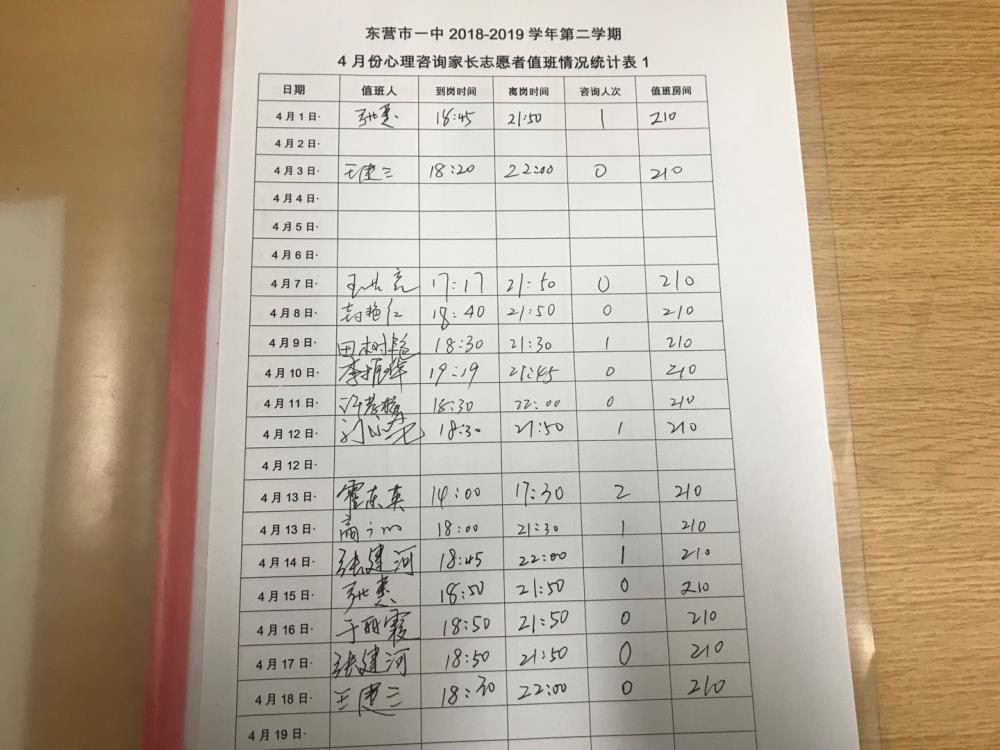 东营市一中 2018-2019 学年第二学期
4 月份心理咨询家长志愿者值班情况统计表 1
日期 值班人 到岗时间 离岗时间 咨询人次 值班房间
4 月 1 日· 张惠 18:45 21:50 1 210
4 月 2 日·
4 月 3 日· 王建三 18:20 22:00 0 210
4 月 4 日·
4 月 5 日·
4 月 6 日·
4 月 7 日· 17:17 21:50 0 210
4 月 8 日· 18:40 21:50 0 210
4 月 9 日· 18:30 21:30 1 210
4 月 10 日· 19:19 21:45 0 210
4 月 11 日· 18:30 22:00 0 210
4 月 12 日· 18:30 21:50 1 210
4 月 12 日·
4 月 13 日· 霍东英 14:00 17:30 2 210
4 月 13 日· 18:00 21:30 1 210
4 月 14 日· 张建河 18:45 22:00 1 210
4 月 15 日· 张惠 18:50 21:50 0 210
4 月 16 日· 于丽霞 18:50 21:50 0 210
4 月 17 日· 张建河 18:50 21:50 0 210
4 月 18 日· 王建三 18:30 22:00 0 210
4 月 19 日·